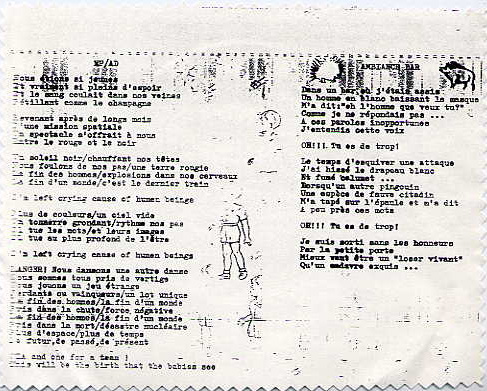 MP/AD
Nous étions si jeunes
Et vraiment si pleins d'espoir
Et le sang coulait dans nos veines
Pétillant comme le champagne
Revenant après de longs mois
D'une mission spatiale
Le spectacle s'offrait à nous
Entre le rouge et le noir
Un soleil noir/chauffant nos têtes
Nous foulons de nos pas/une terre rougie
La fin des hommes/explosions dans nos cerveaux
La fin d'un monde/c'est le dernier train
I'm left crying cause of human beings
Plus de couleurs/un ciel vide
Un tonnerre grondant/rythme nos pas
Où tus les mots/et leurs images
Où tus au plus profond de l'être
I'm left crying cause of human beings
DANGER! Nous dansons une autre danse
Nous sommes tous pris de vertige
Nous jouons un jeu étrange
Perdants ou vainqueurs/un lot unique
La fin des hommes/la fin d'un monde
Pris dans la chute/force négative
La fin des hommes/la fin d'un monde
Pris dans la mort/désastre nucléaire
Plus d'espace/plus de temps
Le futur, de passé, de présent
and one for a team !
This will be the birth that the babies see
AMBIANCE BAR
Dans un bar où j'étais assis
Un homme en blanc baissant le masque
M'a dit:"eh l'homme que veux tu?"
Comme je ne répondais pas ...
A ces paroles inopportunes
J'entendis cette voix
OH!!! Tu es de trop!
Le temps d'esquiver une attaque
J'ai hissé le drapeau blanc
Et fumé calumet ...
Lorsqu'un autre pingouin
Une espèce de fauve citadin
M'a tapé sur l'épaule et m'a dit
A peu près ces mots
OH!!! Tu es de trop!
Je suis sorti sans les honneurs
Par la petite porte
Mieux vaut être un "loser vivant"
Qu'un cadavre exquis ...